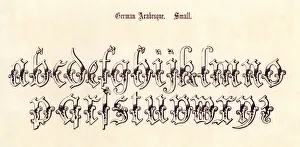 German Arabesque. Small.
abcdefghijklmno
pqrstuvwxyz